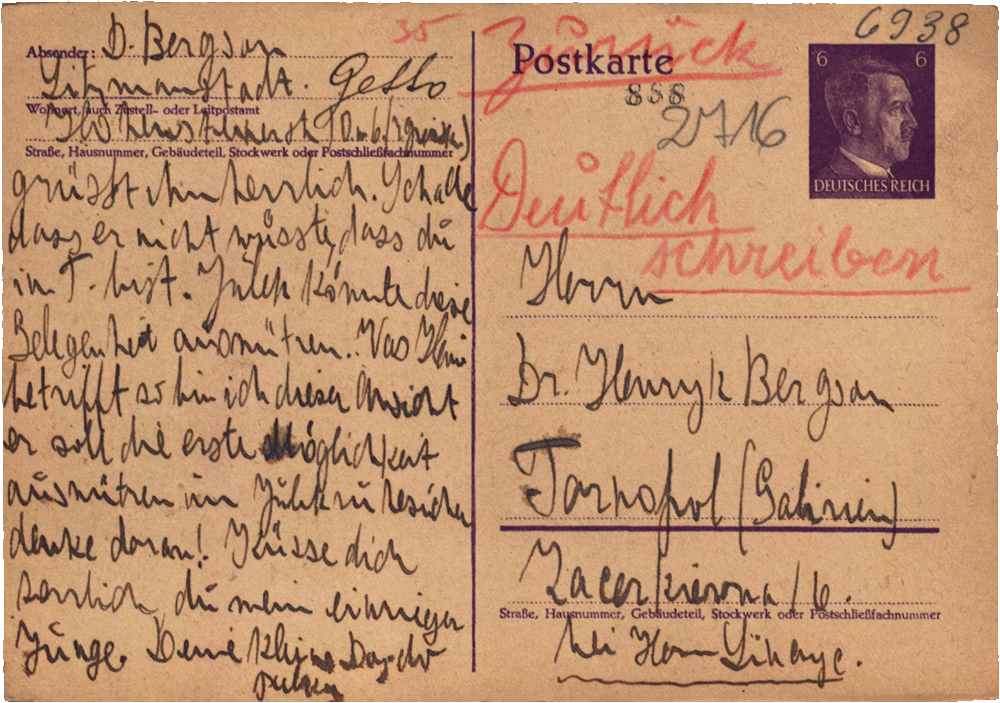 Absender: D. Bergson
Litzmannstadt. Getto
Wohnort, auch Zustell- oder Leitpostamt
Straße, Hausnummer, Gebäudeteil, Stockwerk oder Postschließfachnummer
grüsst ihn herrlich. Schade
dass er nicht wüsste, dass du
in T. bist. Julek könnte diese
Gelegenheit ausnützen. Was
betrifft so bin ich dieser Ansicht
er soll die erste Möglichkeit
ausnützen um Julek zu
denke daran! Küsse dich
herrlich, du mein einziger
Junge. Deine
35
Zurück
6938
Postkarte
858
2716
6 6
DEUTSCHES REICH
Deutlich
schreiben
Herrn
Dr. Henryk Bergson
Tarnopol (Galizien)
Zacerkiewna / 6.
Straße, Hausnummer, Gebäudeteil, Stockwerk oder Postschließfachnummer
bei Herrn